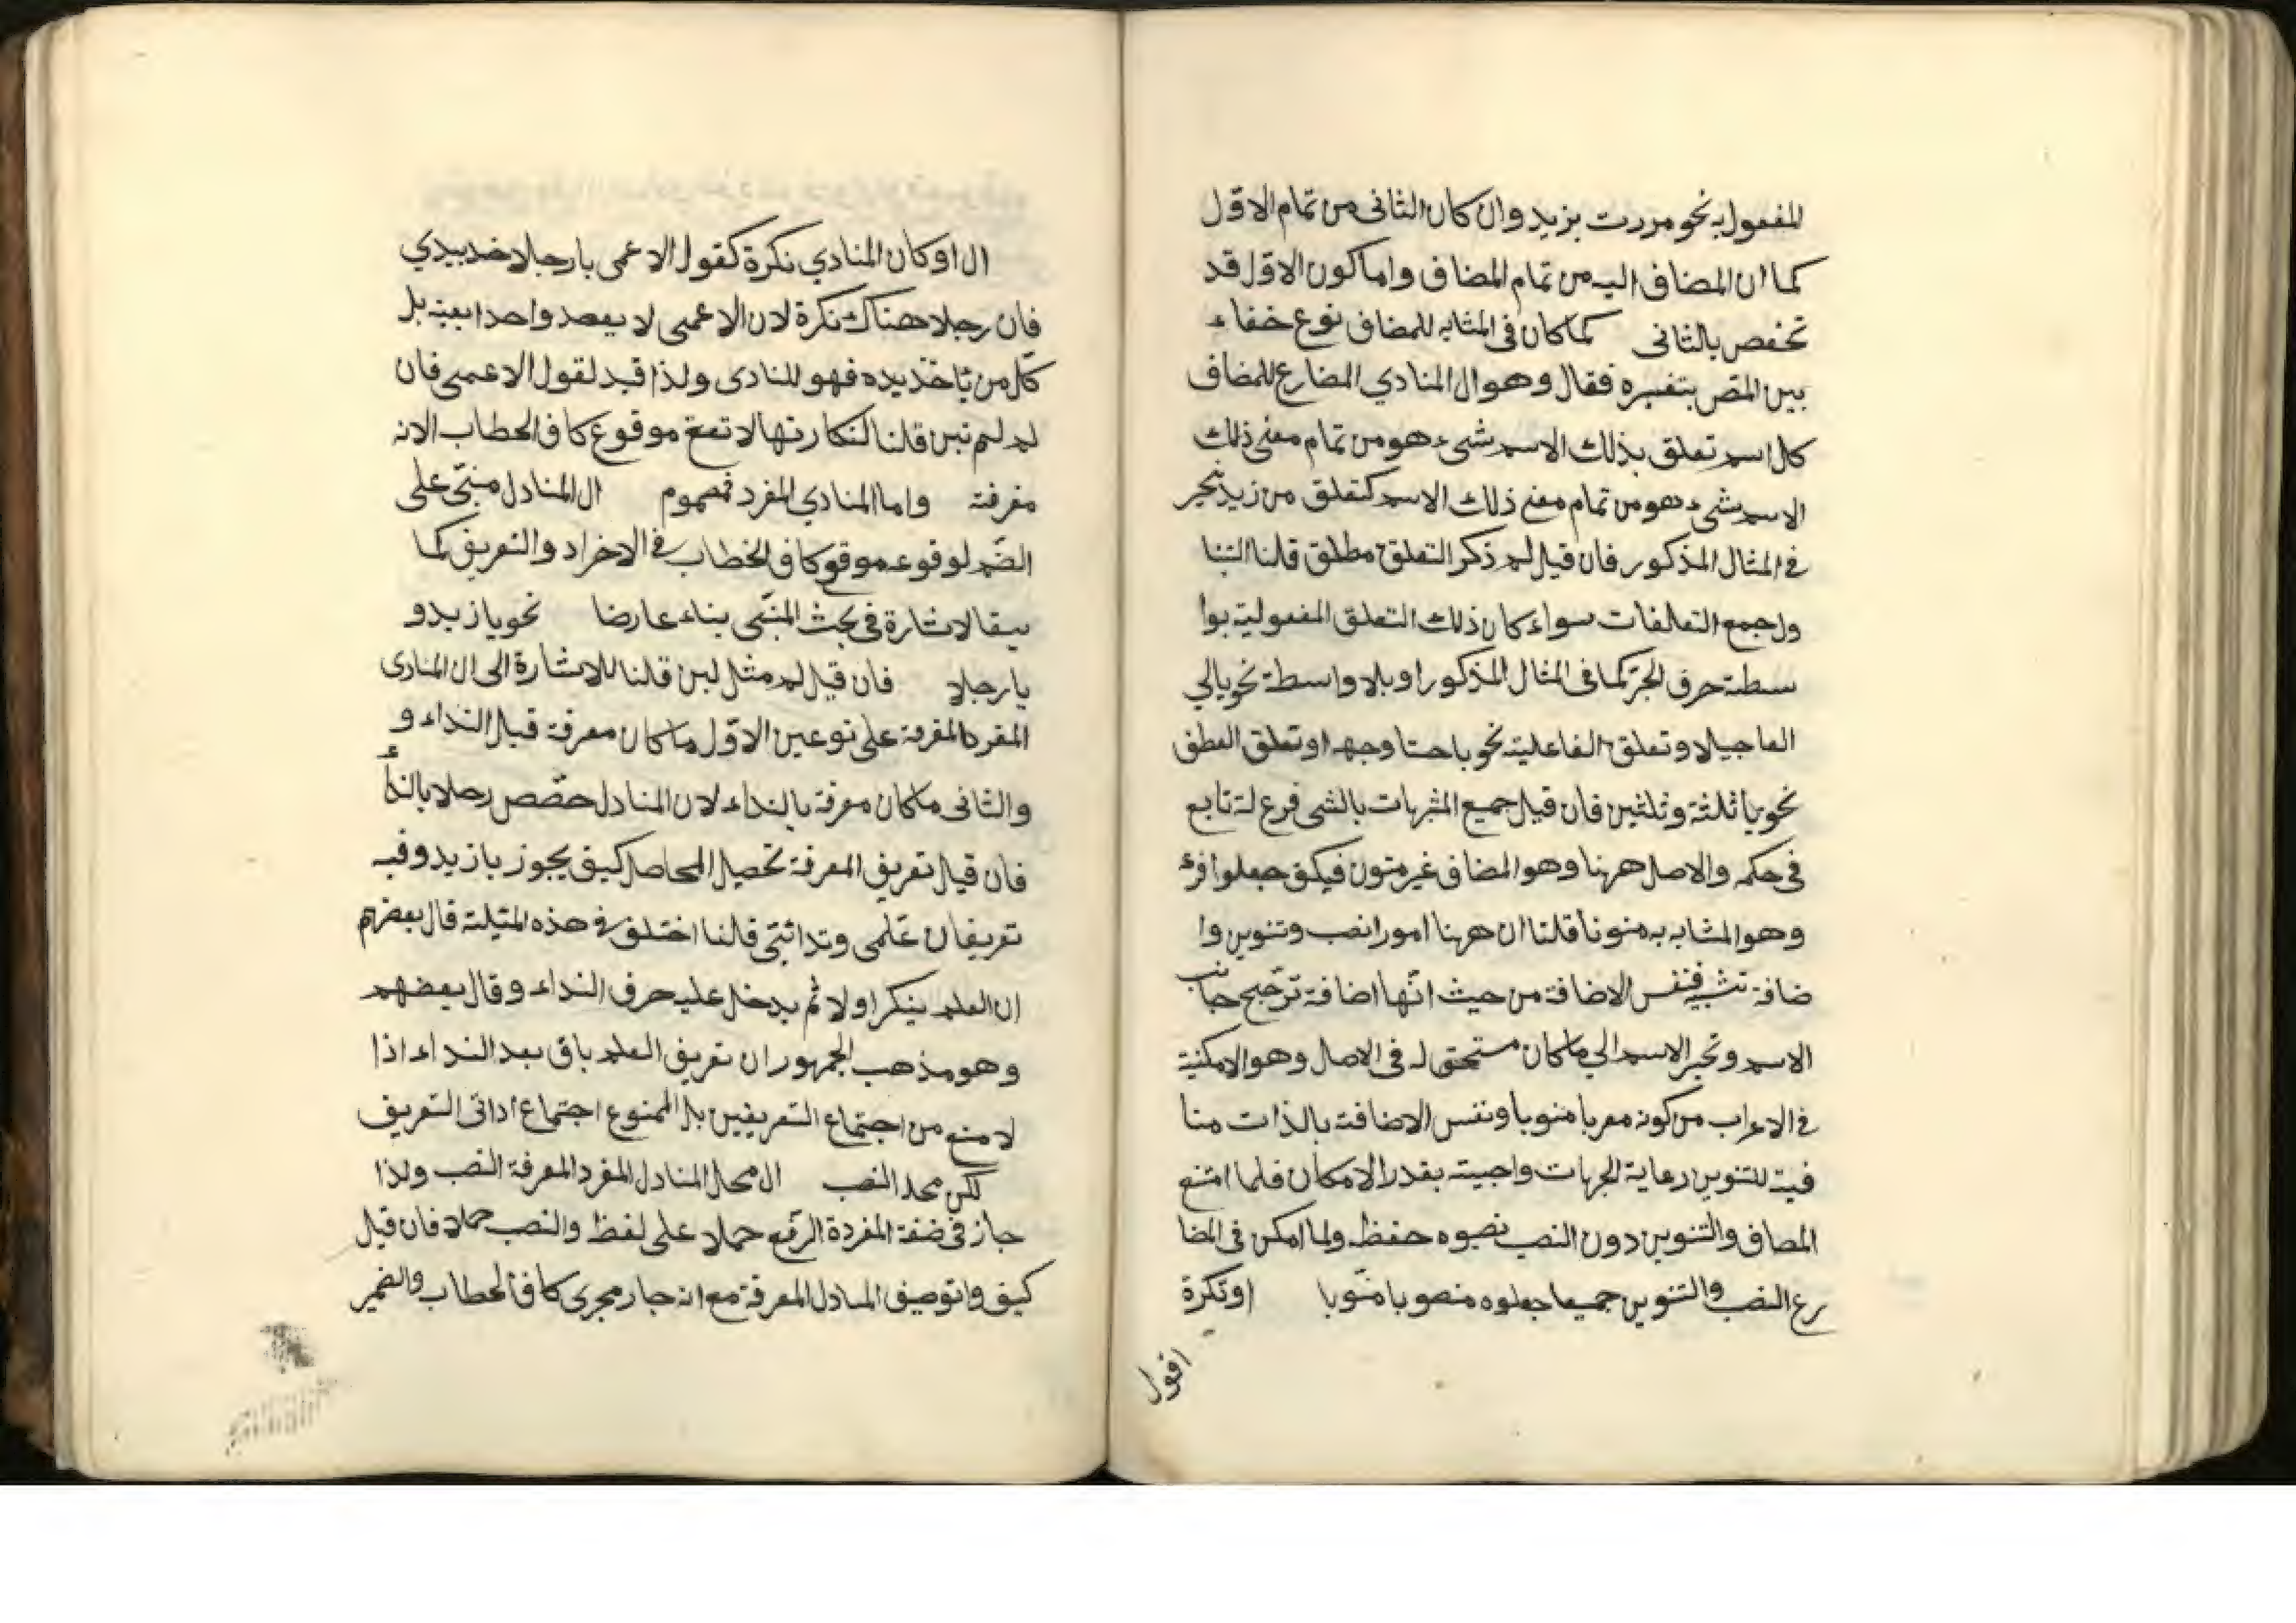 المفعول به نحو مررت بزيد وان كان الثانى من تمام الاوّل
كما ان المضاف اليه من تمام المضاف واما كون الاوّل قد
تخصص بالثانى كما كان فى المثابه للمضاف نوع خفاء
بين المص بتفسيره فقال وهو ال المنادي المضارع للمضاف
كل اسم تعلق بذلك الاسم شىء هو من تمام معنى ذلك
الاسم شىء هو من تمام معنى ذلك الاسم كتعلق من زيد بخير
فى المثال المذكور فان قيل لم ذكر التعلق مطلق قلنا
ول جمع التعلقات سواء كان ذلك التعلق المفعولية بوا
سطة حرف الجرّ كما فى المثال المذكور او بلا واسطة نحو يا
او تعلق الفاعلية نحو يا حسنا وجهه او تعلق العطف
نحو يا ثلثة وثلثين فان قيل جميع المشبهات بالشى فرع له تابع
فى حكمه والاصل ههنا وهو المضاف غير منون فكيف جعلوا فرعه
وهو المشابه به منونا قلنا ان ههنا امورا نصب وتنوين وا
ضافة فنفس الاضافة من حيث انّها اضافة ترجّح جانب
الاسم وتجر الاسم الي ما كان مستحق له فى الاصل وهو الامكنية
فى الاعراب من كونه معربا منونا ونفس الاضافة بالذات منا
فية للتنوين رعاية الجهات واجبة بقدر الامكان فلما امتنع
المضاف والتنوين دون النصب نصبوه حفظ ولما امكن فى المضا
رع النصب والتنوين جميعا جعلوه منصوبا منّونا او نكرة
اقول
ال او كان المنادي نكرة كقول الاعمى يا رجلا خذ بيدي
فان رجلا هناك نكرة لان الاعمى لا يقصد واحدا بعينه بل
كّل من ياخذ يده فهو المنادى ولذا قيد لقول الاعمى فان
لم لم تبن قلنا لنكارتها لا تقع موقوع كاف الخطاب لانه
معرفة واما المنادي المفرد فمضموم ال المنادل مبنّى على
الضّم لوقوعه موقع كاف الخطاب فى الافراد والتعريف كما
سبق الاشارة فى بحث المبنّى بناء عارضا نحو يا زيد و
يا رجلا فان قيل لم مثل قلنا للاشارة الى ال المنادى
المفرد المعرفة على نوعين الاوّل ما كان معرفة قبل النداء و
والثانى ما كان معرفة بالنداء لان المنادل خصّص رجلا بالنداء
فان قيل تعريف المعرفة تحصيل الحاصل كيف يجوز يا زيد وفيه
تعريفان علمى وندائى قالنا اختلف فى هذه المثيلة قال بعضهم
ان العلم ينكر اولا ثم يدخل عليه حرف النداء وقال بعضهم
وهو مذهب الجمهور ان تعريف العلم باق بعد النداء اذا
لا منع من اجتماع التعريفين بل الممنوع اجتماع اداتى التعريف
لكن محله النصب ال محل المنادل المفرد المعرفة النصب ولذا
جاز فى صفة المفردة الرفع حملا على لفظ والنصب حملا فان قيل
كيف توصيف المنادل المعرفة مع انه جار مجرى كاف الخطاب والضمير